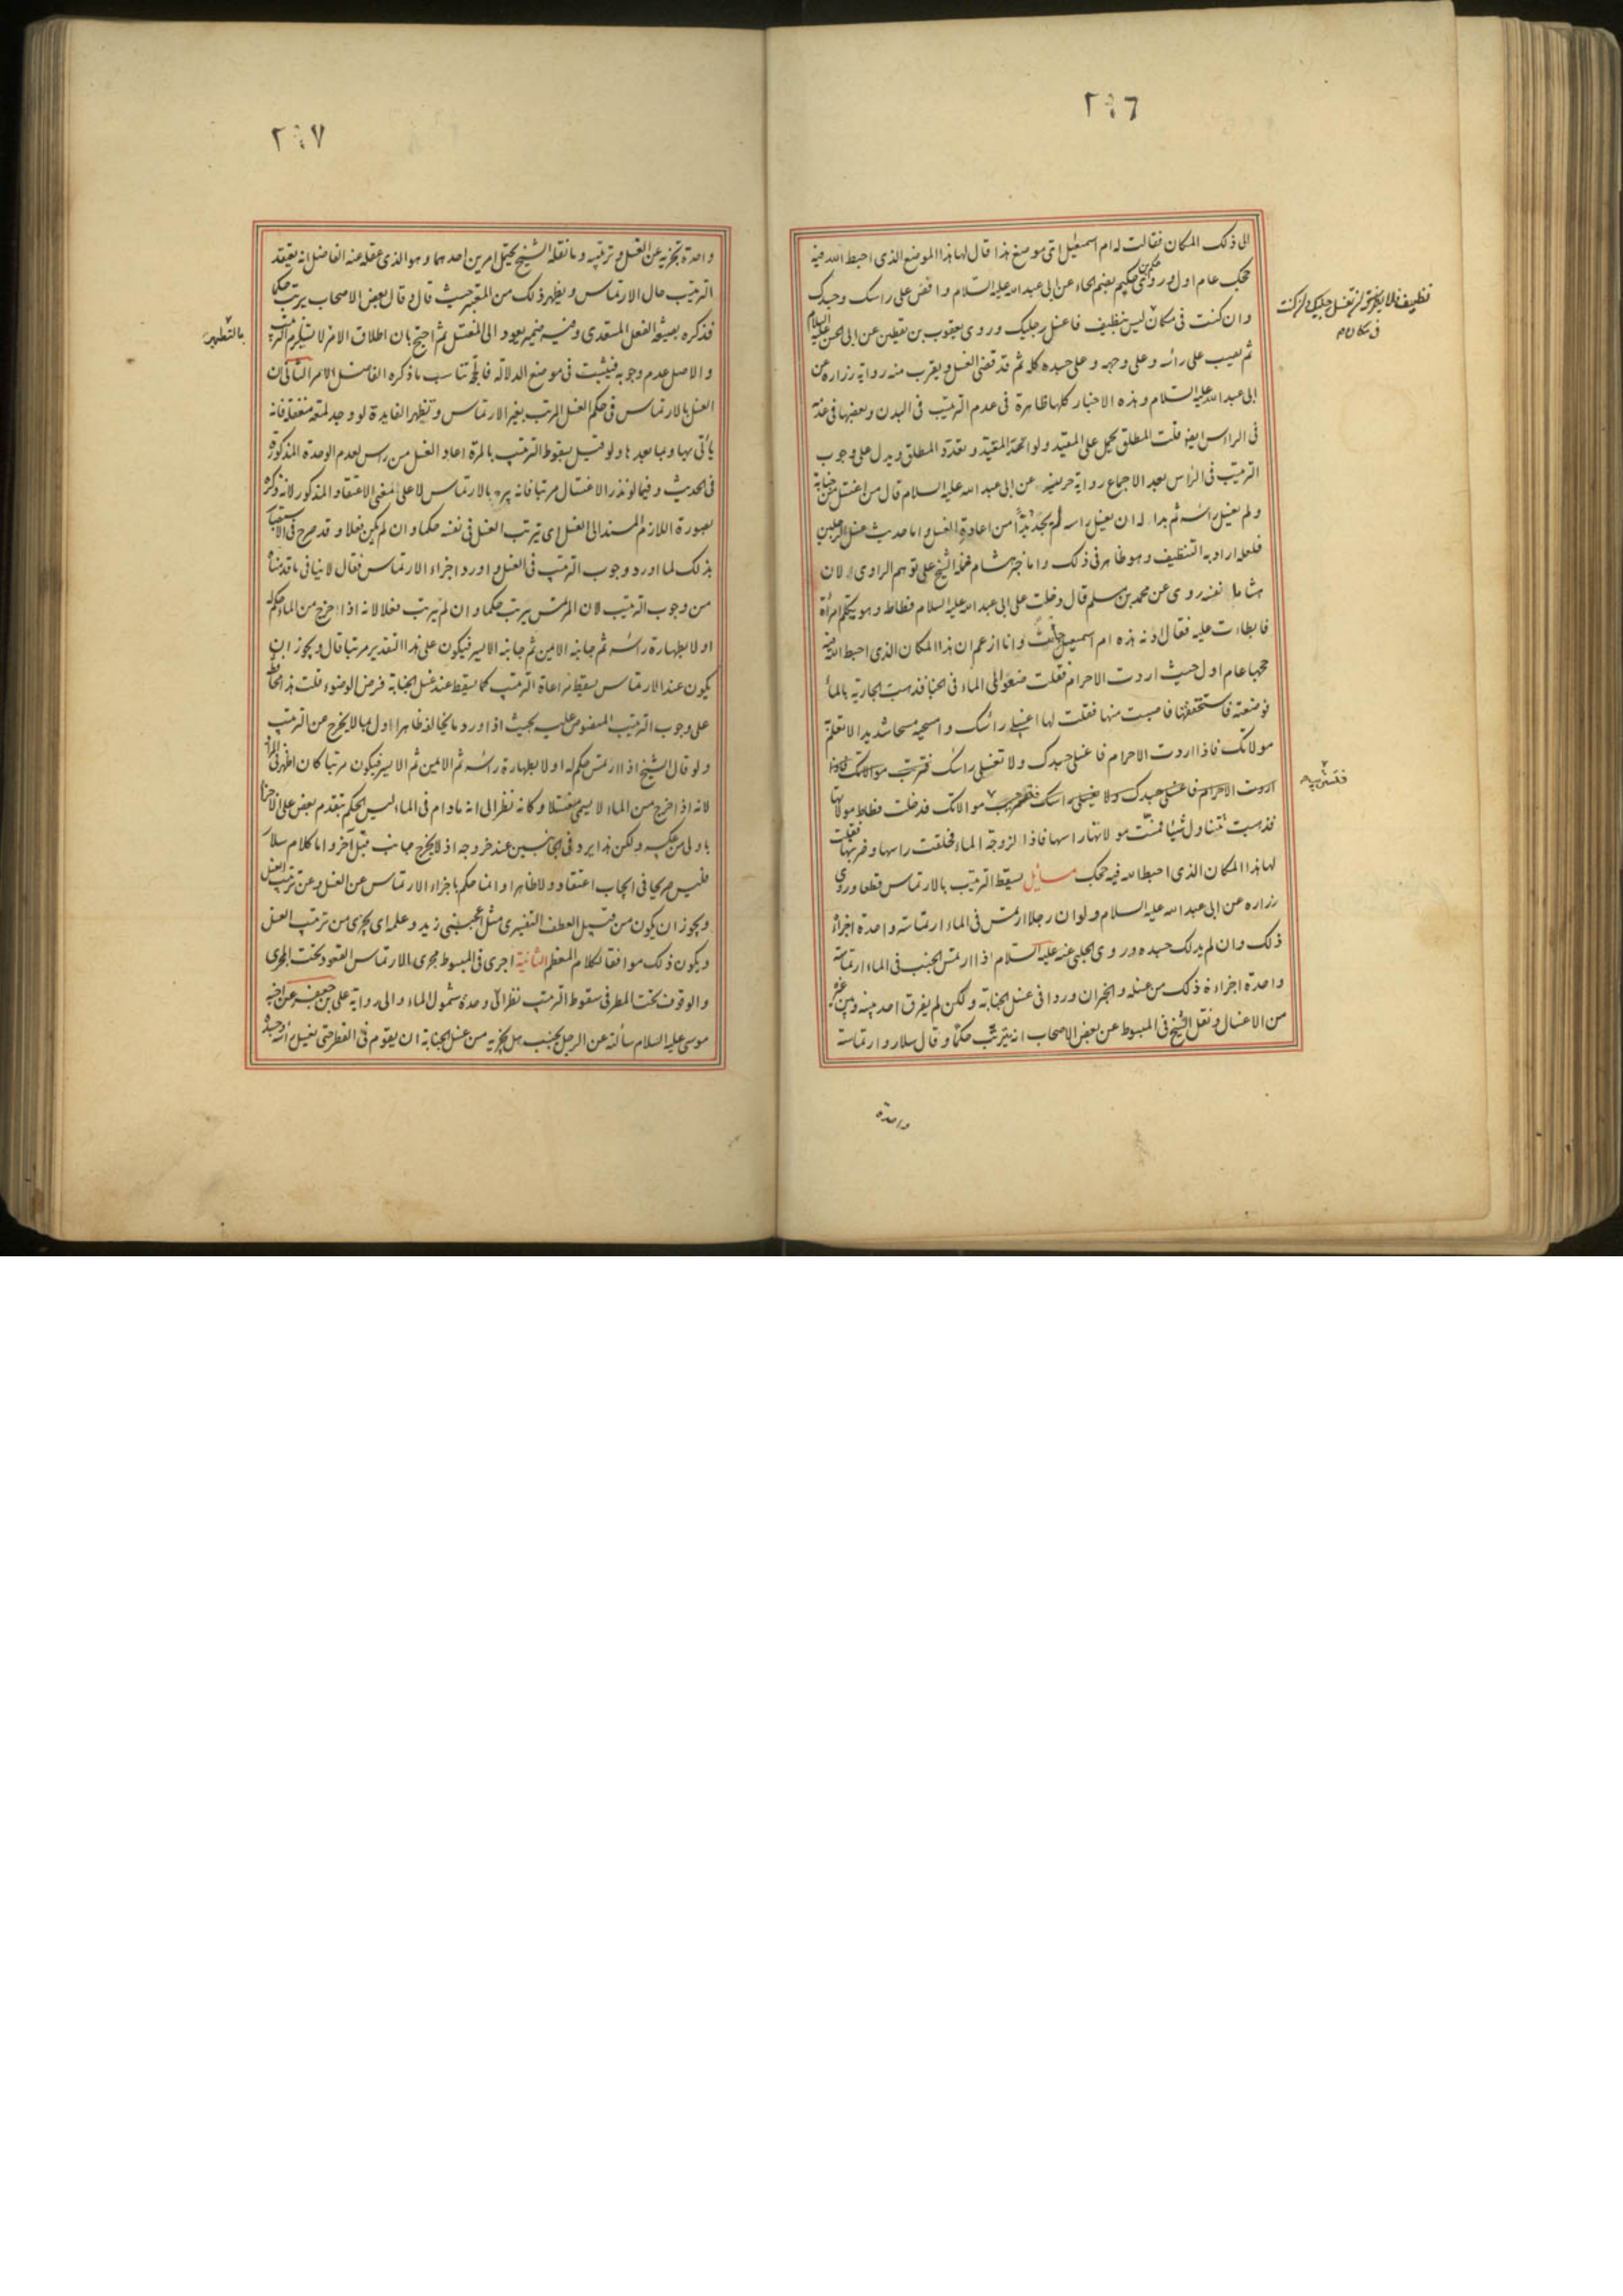 ٢٠٦
الى ذلك المكان فقالت له ام اسمعيل اى موضع هذا قال لها هذا الموضع الذى احبط الله فيه
حجك عام اول وروى حكم بن حكيم بضم الحاء عن ابى عبد الله عليه السلام وافض على راسك وجسدك
وان كنت فى مكان ليس بنظيف فاغسل رجليك وروى يعقوب بن يقطين عن ابى الحسن عليه السلام
ثم يصب على رأسه وعلى وجهه وعلى جسده كله ثم قد قضى الغسل ويقرب منه رواية زرارة عن
ابى عبد الله عليه السلام وهذه الاخبار كلها ظاهرة فى عدم الترتيب فى البدن وبعضها فى
فى الراس ايضا قلت المطلق يحمل على المقيد ويدل على وجوب
الترتيب فى الراس بعد الاجماع رواية حريز عن ابى عبد الله عليه السلام قال من اغتسل من جنابة
ولم يغسل راسه ثم بدا له ان يغسل راسه لم يجد بدا من اعادة الغسل واما حديث غسل الرجلين
فلعله اراد به التنظيف وهو ظاهر فى ذلك واما خبر هشام فحمله الشيخ على توهم الراوى لان
هشاما نفسه روى عن محمد بن مسلم قال دخلت على ابى عبد الله عليه السلام فسطاطه وهو يكلم امرأة
فابطات عليه فقال ادنه هذه ام اسمعيل جائت وانا ازعم ان هذا المكان الذى احبط الله فيه
حجها عام اول حيث اردت الاحرام فقلت ضعوا لى الماء فى الخبا فذهبت الجارية بالماء
فوضعته فاستخففتها فاصبت منها فقلت لها اغسلى رأسك وامسحيه مسحا شديدا لا تعلم به
مولاتك فاذا اردت الاحرام فاغسلى جسدك ولا تغسلى راسك فتريب مولاتك فاذا
اردت الاحرام فاغسلى جسدك ولا تغسلى راسك مولاتك فدخلت فسطاط مولاتها
فذهبت تتناول شيئا فمست مولاتها راسها فاذا لزوجة الماء فحلقت راسها وضربتها فقلت
لها هذا المكان الذى احبط الله فيه حجك مسائل يسقط الترتيب بالارتماس قطعا وروى
زرارة عن ابى عبد الله عليه السلام ولو ان رجلا ارتمس فى الماء ارتماسة واحدة اجزأه
ذلك وان لم يدلك جسده وروى الحلبى عنه عليه السلام اذا ارتمس الجنب فى الماء ارتماسة
واحدة اجزاءه ذلك من غسله والخبران وردا فى غسل الجنابة ولكن لم يفرق احد بينه وبين غيره
من الاغسال ونقل الشيخ فى المبسوط عن بعض الاصحاب انه يترتب حكما وقال سلار وارتماسة
واحدة
فى مكان
٢٠٧
واحدة تجزيه عن الغسل وترتيبه وما نقله الشيخ يحتمل امرين احدهما وهو الذى عقله عنه الفاضل انه يعتقد
الترتيب حال الارتماس ويظهر ذلك من المعتبر حيث قال وقال بعض الاصحاب يرتب حكما
فذكره بصيغة الفعل المتعدى وفيه ضمير يعود الى المغتسل ثم احتج بان اطلاق الامر لا يستلزم الترتيب
والاصل عدم وجوبه فيثبت فى موضع الدلالة فالحجة تناسب ما ذكره الفاضل الامر الثانى ان
الغسل بالارتماس فى حكم الغسل المرتب بغير الارتماس وتظهر الفايدة لو وجد لمعة مغفلة فانه
يأتى بها وبما بعدها ولو قيل بسقوط الترتيب بالمرة اعاد الغسل من راس لعدم الوحدة المذكورة
فى الحديث وفيما لو نذر الاغتسال مرتبا فانه يبر بالارتماس لا على معنى الاعتقاد المذكور لانه ذكره
بصورة اللازم المسند الى الغسل اى يترتب الغسل فى نفسه حكما وان لم يكن فعلا وقد صرح فى الاستبصار
بذلك لما اورد وجوب الترتيب فى الغسل واورد اجزاء الارتماس فقال لا ينافى ما قدمناه
من وجوب الترتيب لان المرتمس يرتب حكما وان لم يرتب فعلا لانه اذا خرج من الماء حكم له
اولا بطهارة رأسه ثم جانبه الايمن ثم جانبه الايسر فيكون على هذا التقدير مرتبا قال ويجوز ان
يكون عند الارتماس يسقط مراعاة الترتيب كما يسقط عند غسل الجنابة فرض الوضوء قلت هذا محافظة
على وجوب الترتيب المنصوص عليه بحيث اذا ورد ما يخالفه ظاهرا اول بما لا يخرج عن الترتيب
ولو قال الشيخ اذا ارتمس حكم له اولا بطهارة رأسه ثم الايمن ثم الايسر فيكون مرتبا كان اظهر فى المراد
لانه اذا خرج من الماء لا يسمى مغتسلا وكانه نظر الى انه ما دام فى الماء ليس الحكم بتقدم بعض على الاجزاء
باولى من عكسه ولكن هذا يرد فى الجانبين عند خروجه اذ لا يخرج جانب قبل آخر واما كلام سلار
فليس صريحا فى ايجاب اعتقاد ولا ظاهرا وانما حكم باجزاء الارتماس عن الغسل وعن ترتيب الغسل
ويجوز ان يكون من قبيل العطف التفسيرى مثل اعجبنى زيد وعلمه اى يجزى من ترتيب الغسل
ويكون ذلك موافقا لكلام المعظم الثانية اجرى فى المبسوط مجرى الارتماس القعود تحت المجرى
والوقوف تحت المطر فى سقوط الترتيب نظرا الى وحدة شمول الماء والى رواية على بن جعفر عن اخيه
موسى عليه السلام سألته عن الرجل يجنب هل يجزيه من غسل الجنابة ان يقوم فى القطر حتى يغسل رأسه وجسده